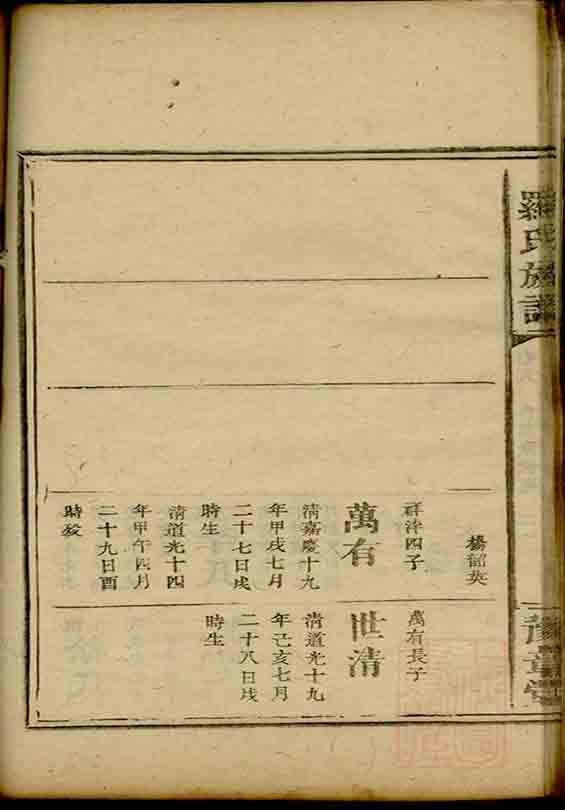 羅氏族譜
豫章堂
楊韶英
祥淳四子
萬有
清嘉慶十九
年甲戌七月
二十七日戌
時生
清道光十四
年甲午四月
二十九日酉
時歿
萬有長子
世清
清道光十九
年己亥七月
二十八日戌
時生